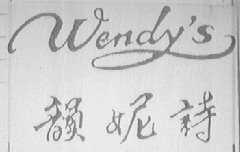 Wendy's
韻妮詩